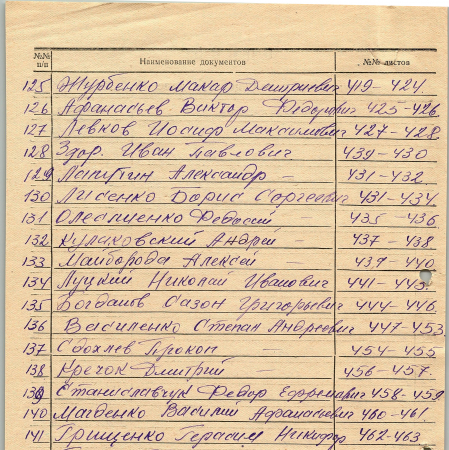 №№ п/п Наименование документов №№ листов
125 Журбенко Макар Дмитриевич 419-424.
126 Афанасьев Виктор Фёдорович 425-426
127 Левков Иосиф Максимович 427-428
128 Здор. Иван Павлович 439-430
129 Лапутин Александр — 431-432.
130 Лисенко Борис Сергеевич 431-434
131 Олесиценко Федосий — 435 - 436
132 Кулаковский Андрей — 437 - 438
133 Майборода Алексей — 439-440
134 Луцкий Николай Иванович 441-443.
135 Богданов Сазон Григорьевич 444-446
136 Василенко Степан Андреевич 447-453
137 Сдохлев Прокоп — 454-455
138 Крехок Дмитрий — 456-457.
139 Станиславчук Федор Ефремович 458-459
140 Магденко Василий Афанасьевич 460-461.
141 Грищенко Герасим Никифор 462-463